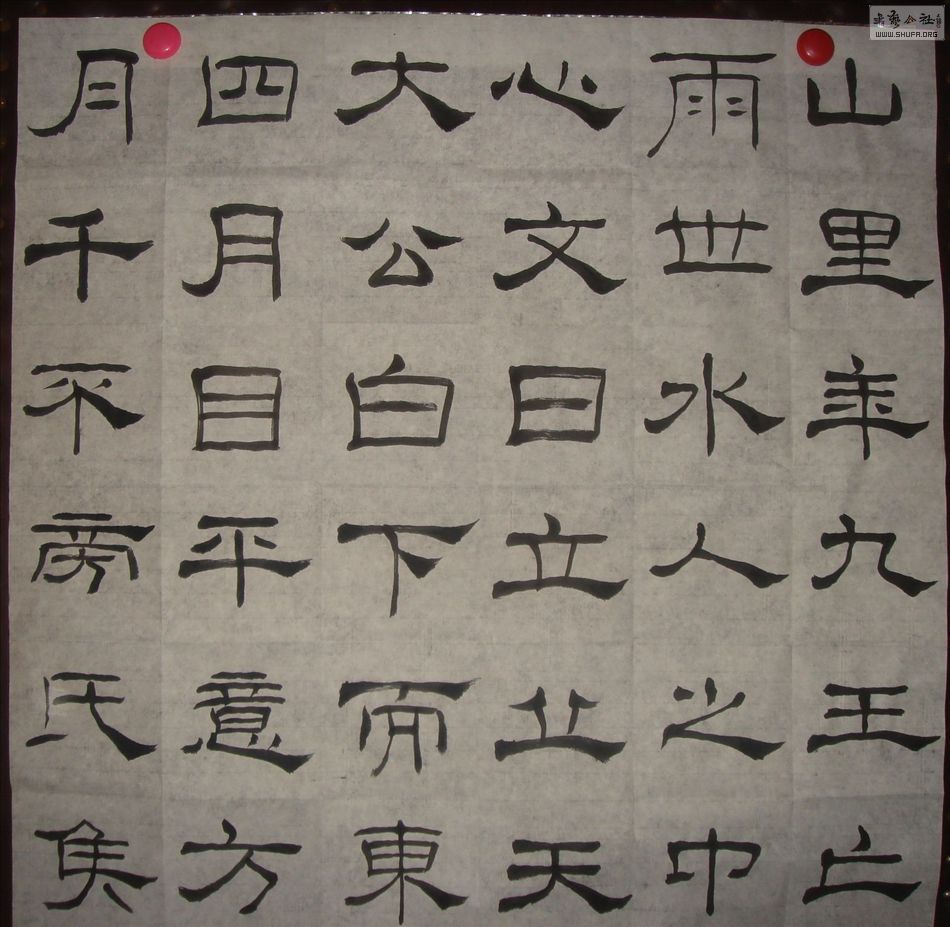 山里年九王亡
雨世水人之巾
心文日立丘天
大公白下而東
四月目平意方
月千不旁氏矦
書藝公社
WWW.SHUFA.ORG